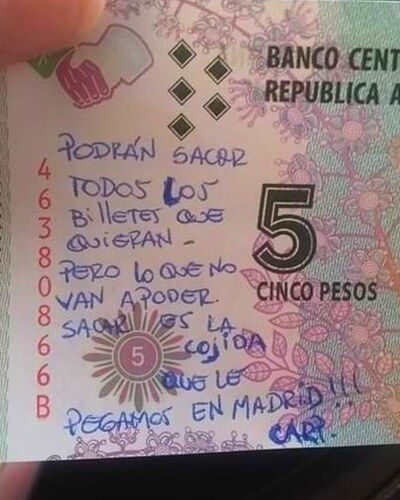 BANCO CENT
REPUBLICA A
PODRÁN SACAR
TODOS LOS
BilletES QUE
QUIERAN -
PERO LO QUE NO
VAN A PODER
SACAR ES LA
COJIDA
QUE LE
PEGAMOS EN MADRID!!!
CARP.
46380866B
5
CINCO PESOS
5